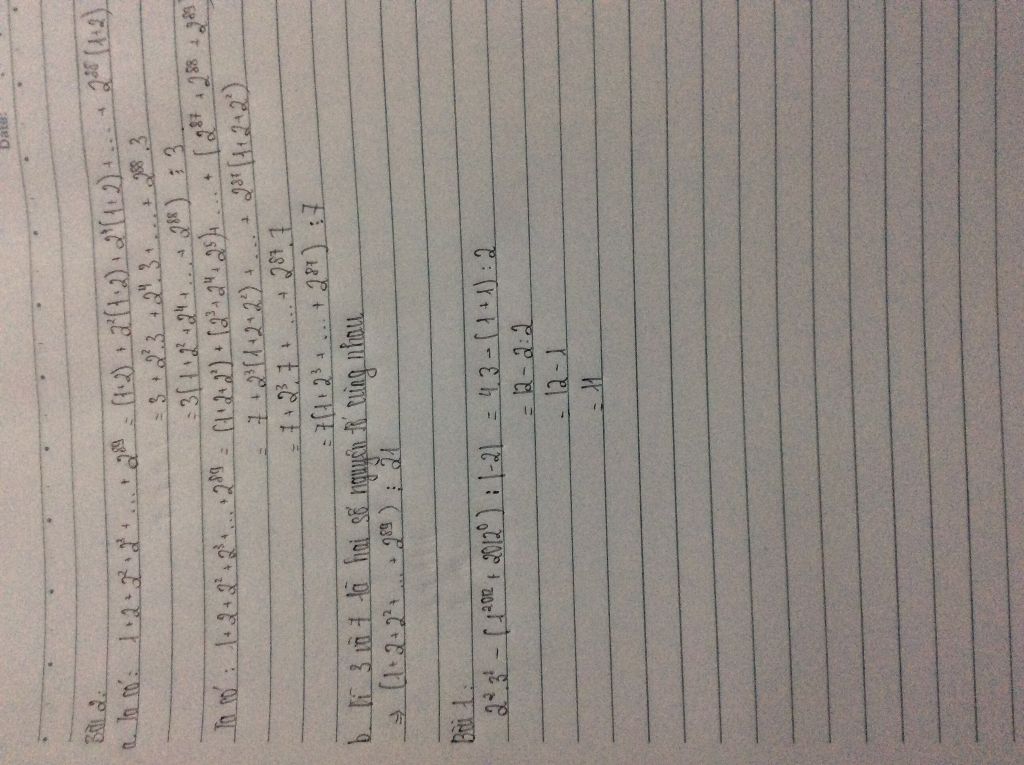 Date:
Bài 2:
a. Ta có: 1+2+2²+2³+...+2⁸⁹ = (1+2) + 2²(1+2) + 2⁴(1+2) + .... + 2⁸⁸(1+2)
= 3 + 2².3 + 2⁴.3 + .... + 2⁸⁸.3
= 3(1+2²+2⁴+...+2⁸⁸) ⋮ 3
Ta có: 1+2+2²+2³+...+2⁸⁹ = (1+2+2²) + (2³+2⁴+2⁵)+ .... + (2⁸⁷+2⁸⁸+2⁸⁹
= 7 + 2³(1+2+2²) + .... + 2⁸⁷(1+2+2²)
= 7 + 2³.7 + .... + 2⁸⁷.7
= 7(1+2³+...+2⁸⁷) ⋮ 7
b. Vì 3 và 7 là hai số nguyên tố cùng nhau
⇒ (1+2+2²+...+2⁸⁹) ⋮ 21
Bài 1:
2².3¹ - (1²⁰¹² + 2012⁰) : |-2| = 4.3 - (1+1) : 2
= 12 - 2:2
= 12 - 1
= 11